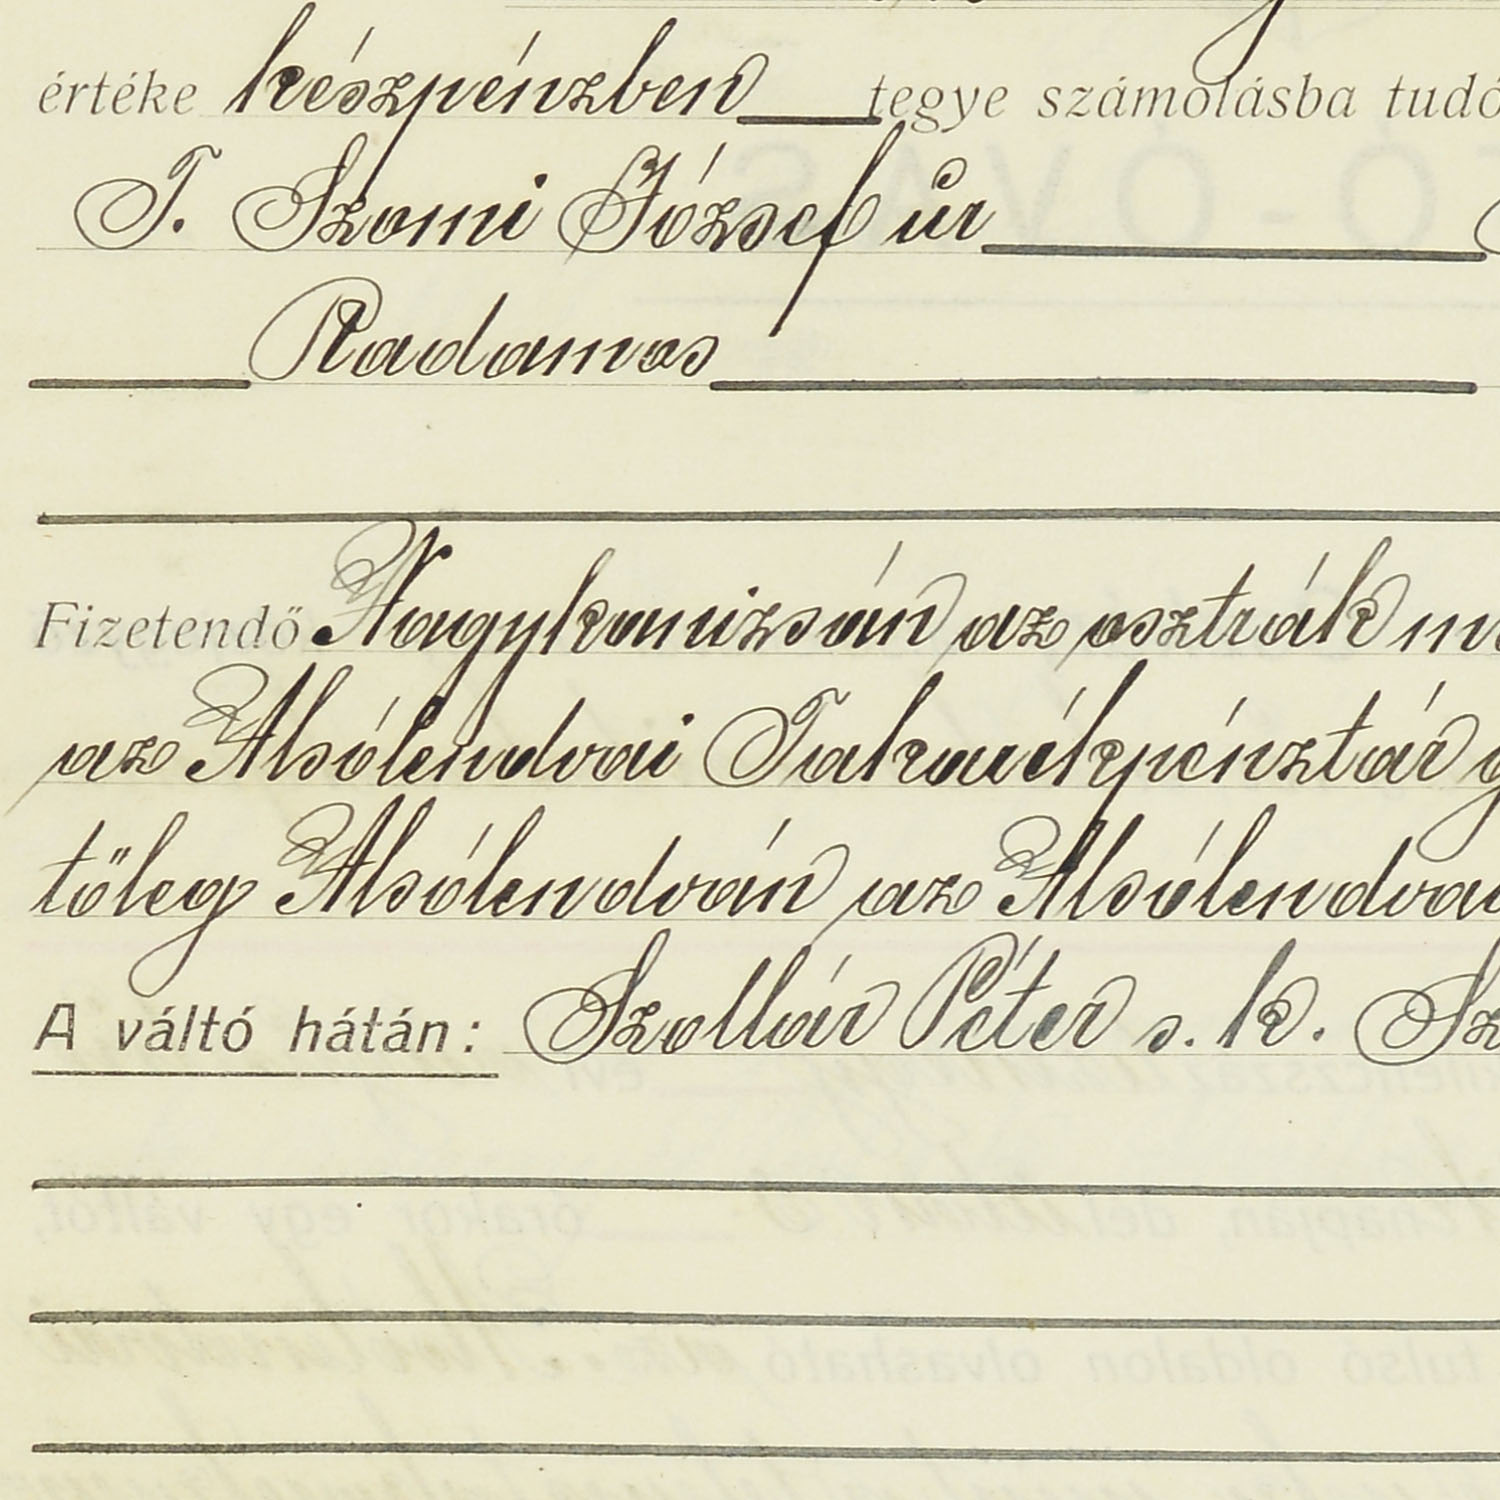 értéke készpénzben tegye számolásba tudó
T. Szomi József úr
Radamos
Fizetendő Nagykanizsán az osztrák
az Alsólendvai Takarékpénztár
tőleg Alsólendván az Alsólendvai
A váltó hátán: Szollár Péter s. k. Sz